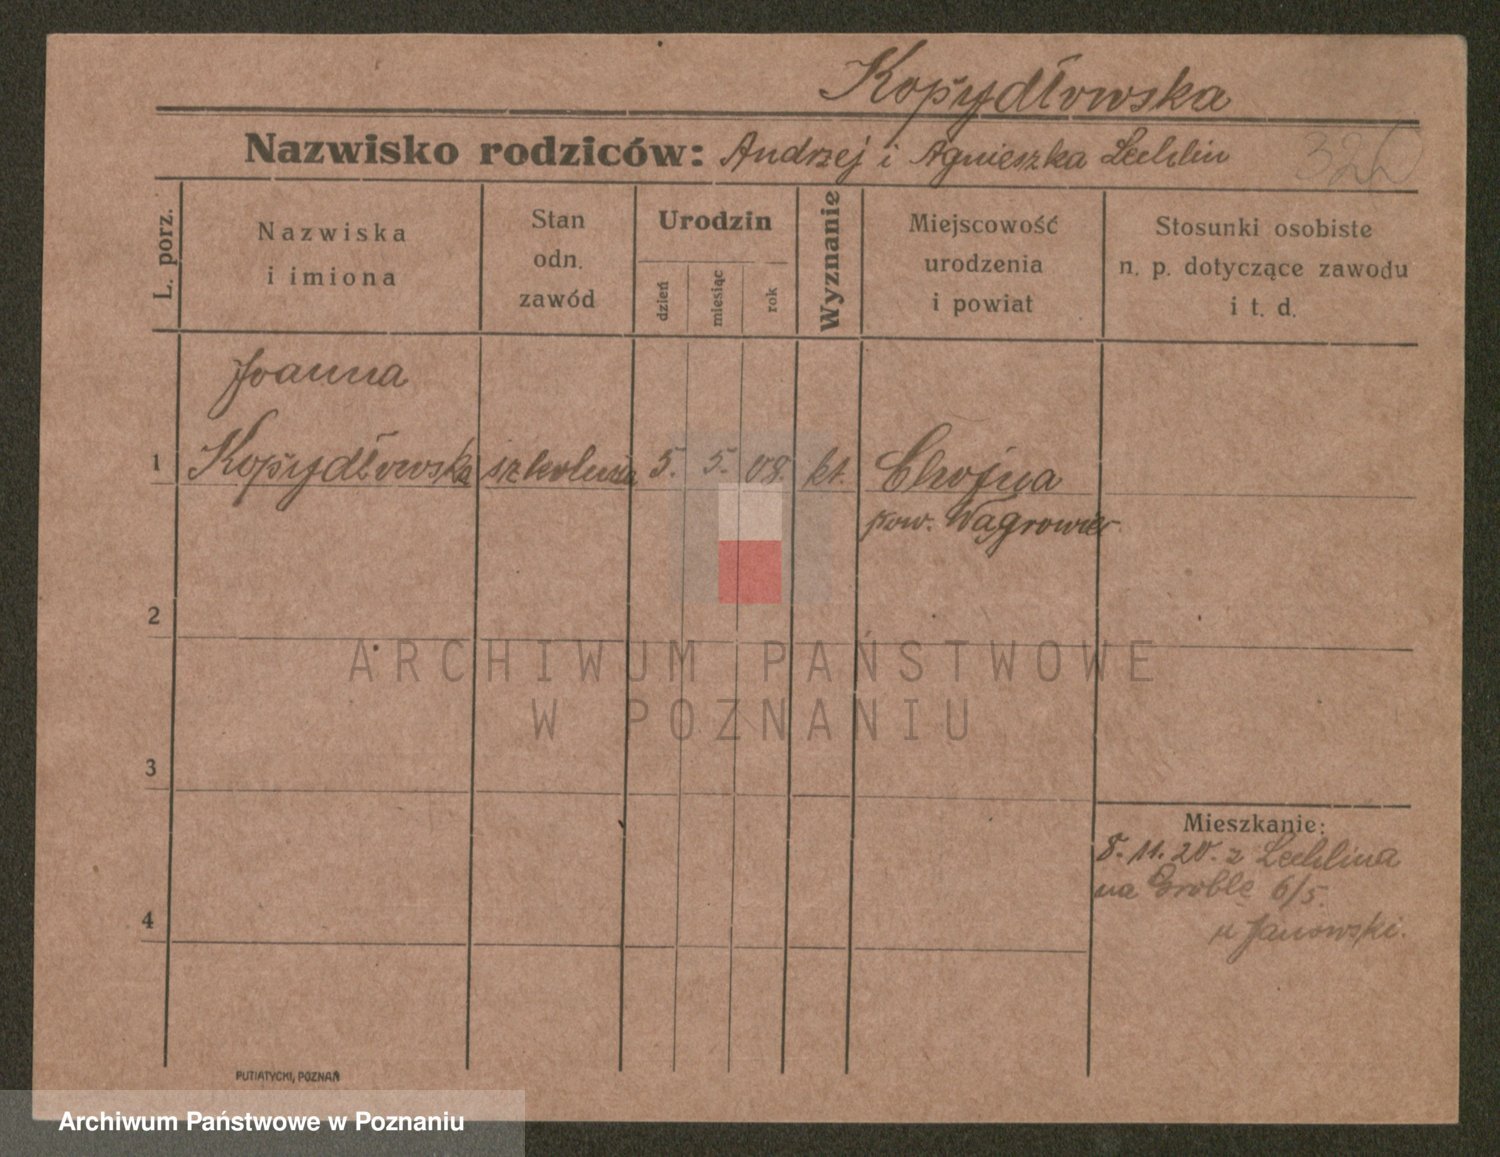 Kopydłowska
Nazwisko rodziców: Andrzej i Agnieszka Lechlin
L. porz.
Nazwiska
i imiona
Stan
odn.
zawód
Urodzin
dzień
miesiąc
rok
Wyznanie
Miejscowość
urodzenia
i powiat
Stosunki osobiste
n. p. dotyczące zawodu
i t. d.
Joanna
1 Kopydłowska 5. 5. 08. kt. Chojna
pow. Wągrowiec
2
3
4
Mieszkanie:
8. 11. 20. z Lechlina
na Groblę 6/5.
u Janowski.
PUTIATYCKI, POZNAŃ
ARCHIWUM PAŃSTWOWE
W POZNANIU
Archiwum Państwowe w Poznaniu